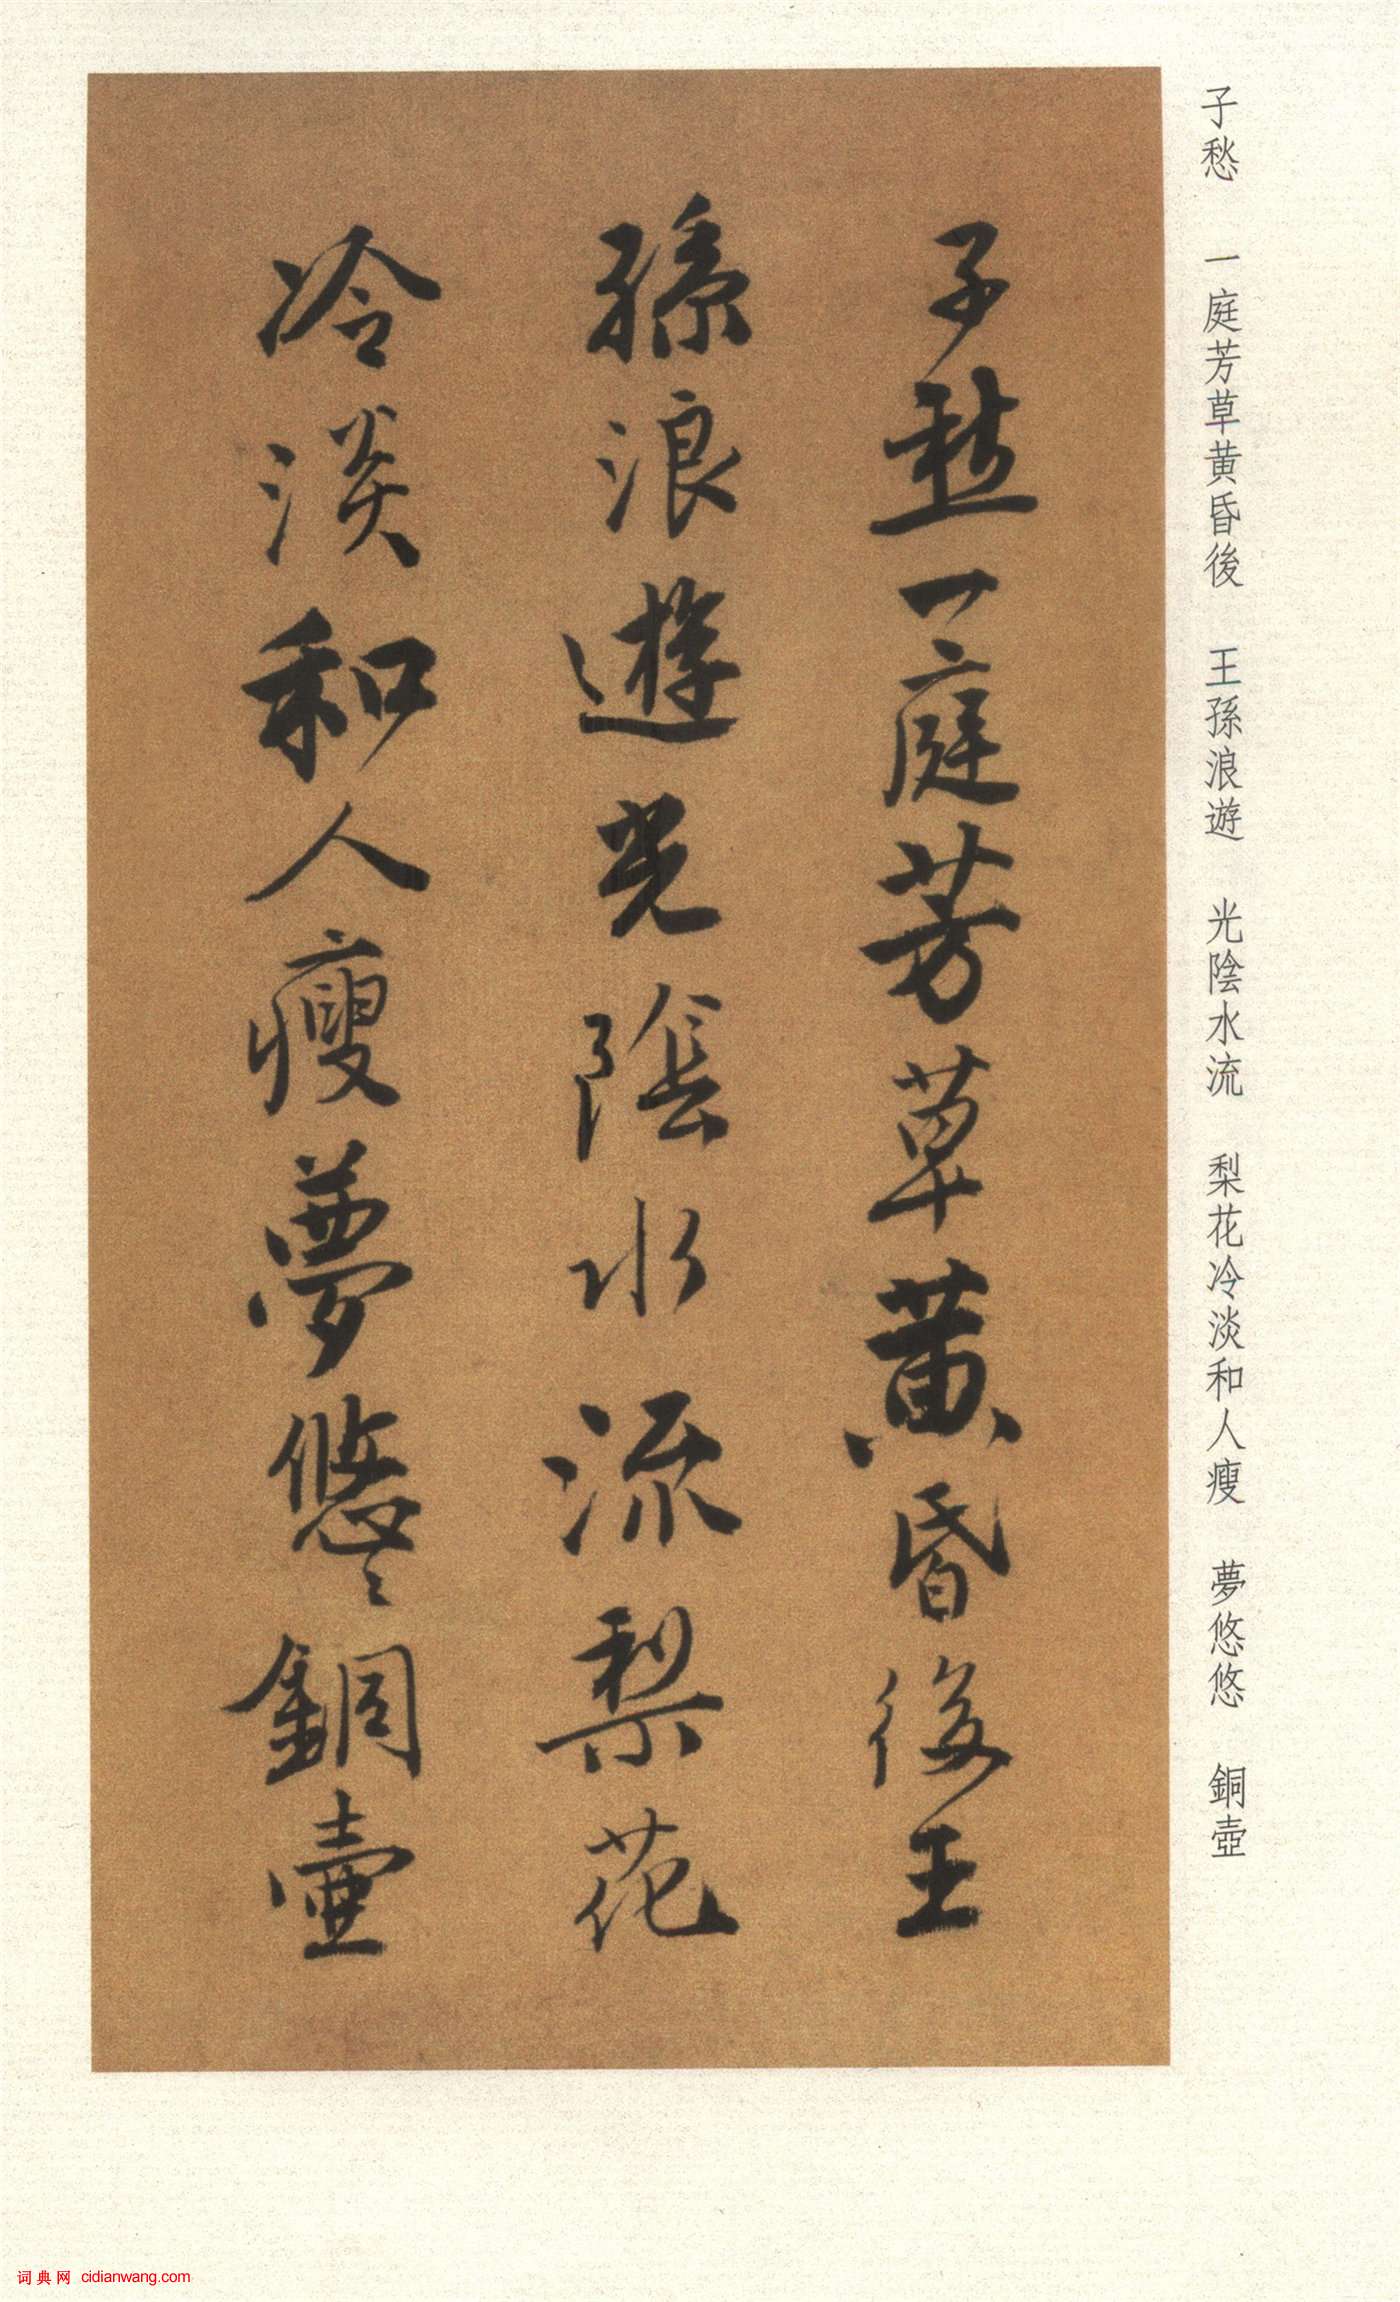 子愁 一庭芳草黄昏後 王孫浪遊 光陰水流 梨花冷淡和人瘦 夢悠悠 銅壺
子愁一庭芳草黄昏後王
孫浪遊光陰水流梨花
冷淡和人瘦夢悠〻銅壺
词典网 cidianwang.com